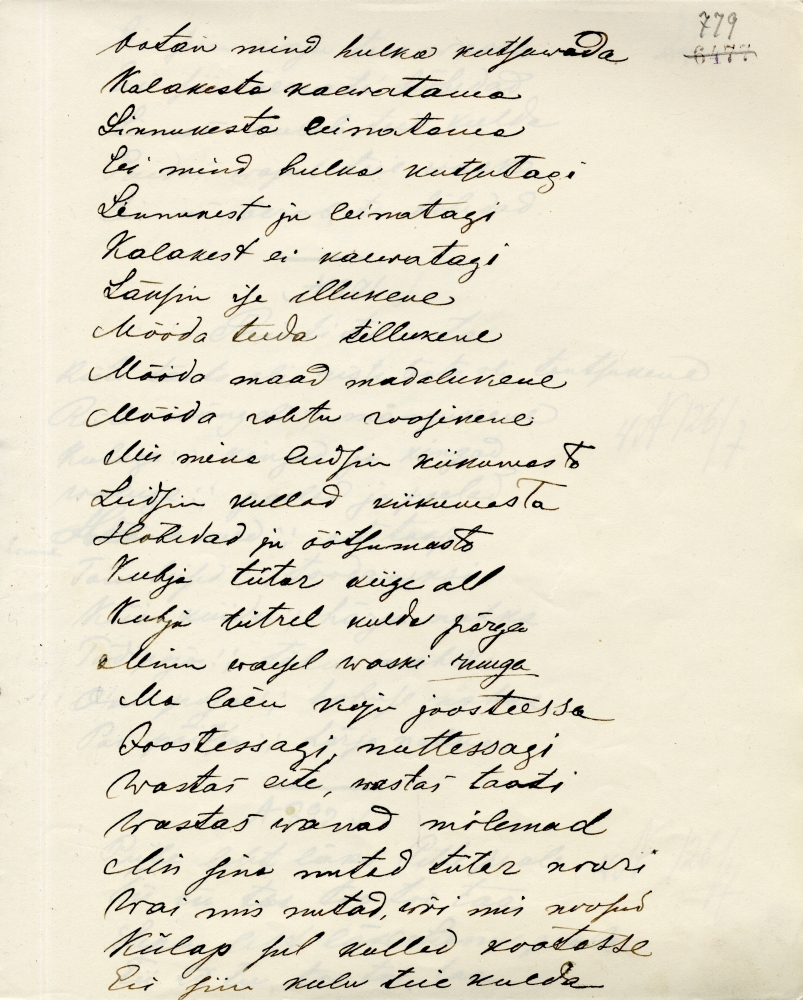 779
6477
Ootan mind hulka kutsuwada
Kalakesta kaewatama
Linnukesta leinatama
Ei mind hulka kutsutagi
Linnukest ju leinatagi
Kalakest ei kaewatagi
Läksin ise illukene
Mööda teeda tillukene
Mööda maad madalukene
Mööda rohtu roosikene
Mis mina leidsin kiikumasta
Leidsin kullad kiikumasta
Hõbedad ju õõtsumasta
Kubja tütar kiige all
Kubja tütrel kulda pärga
Minu waesel waski
Ma läen koju joostessa
Joostessagi, nuttessagi
Wastas eite, wastas taati
Wastas wanad mõlemad
Mis sina nutad tütar noori
Wai mis nutad, wõi mis noosud
Külap sul kullad kaotasse
Eis siin kulu teie kulda